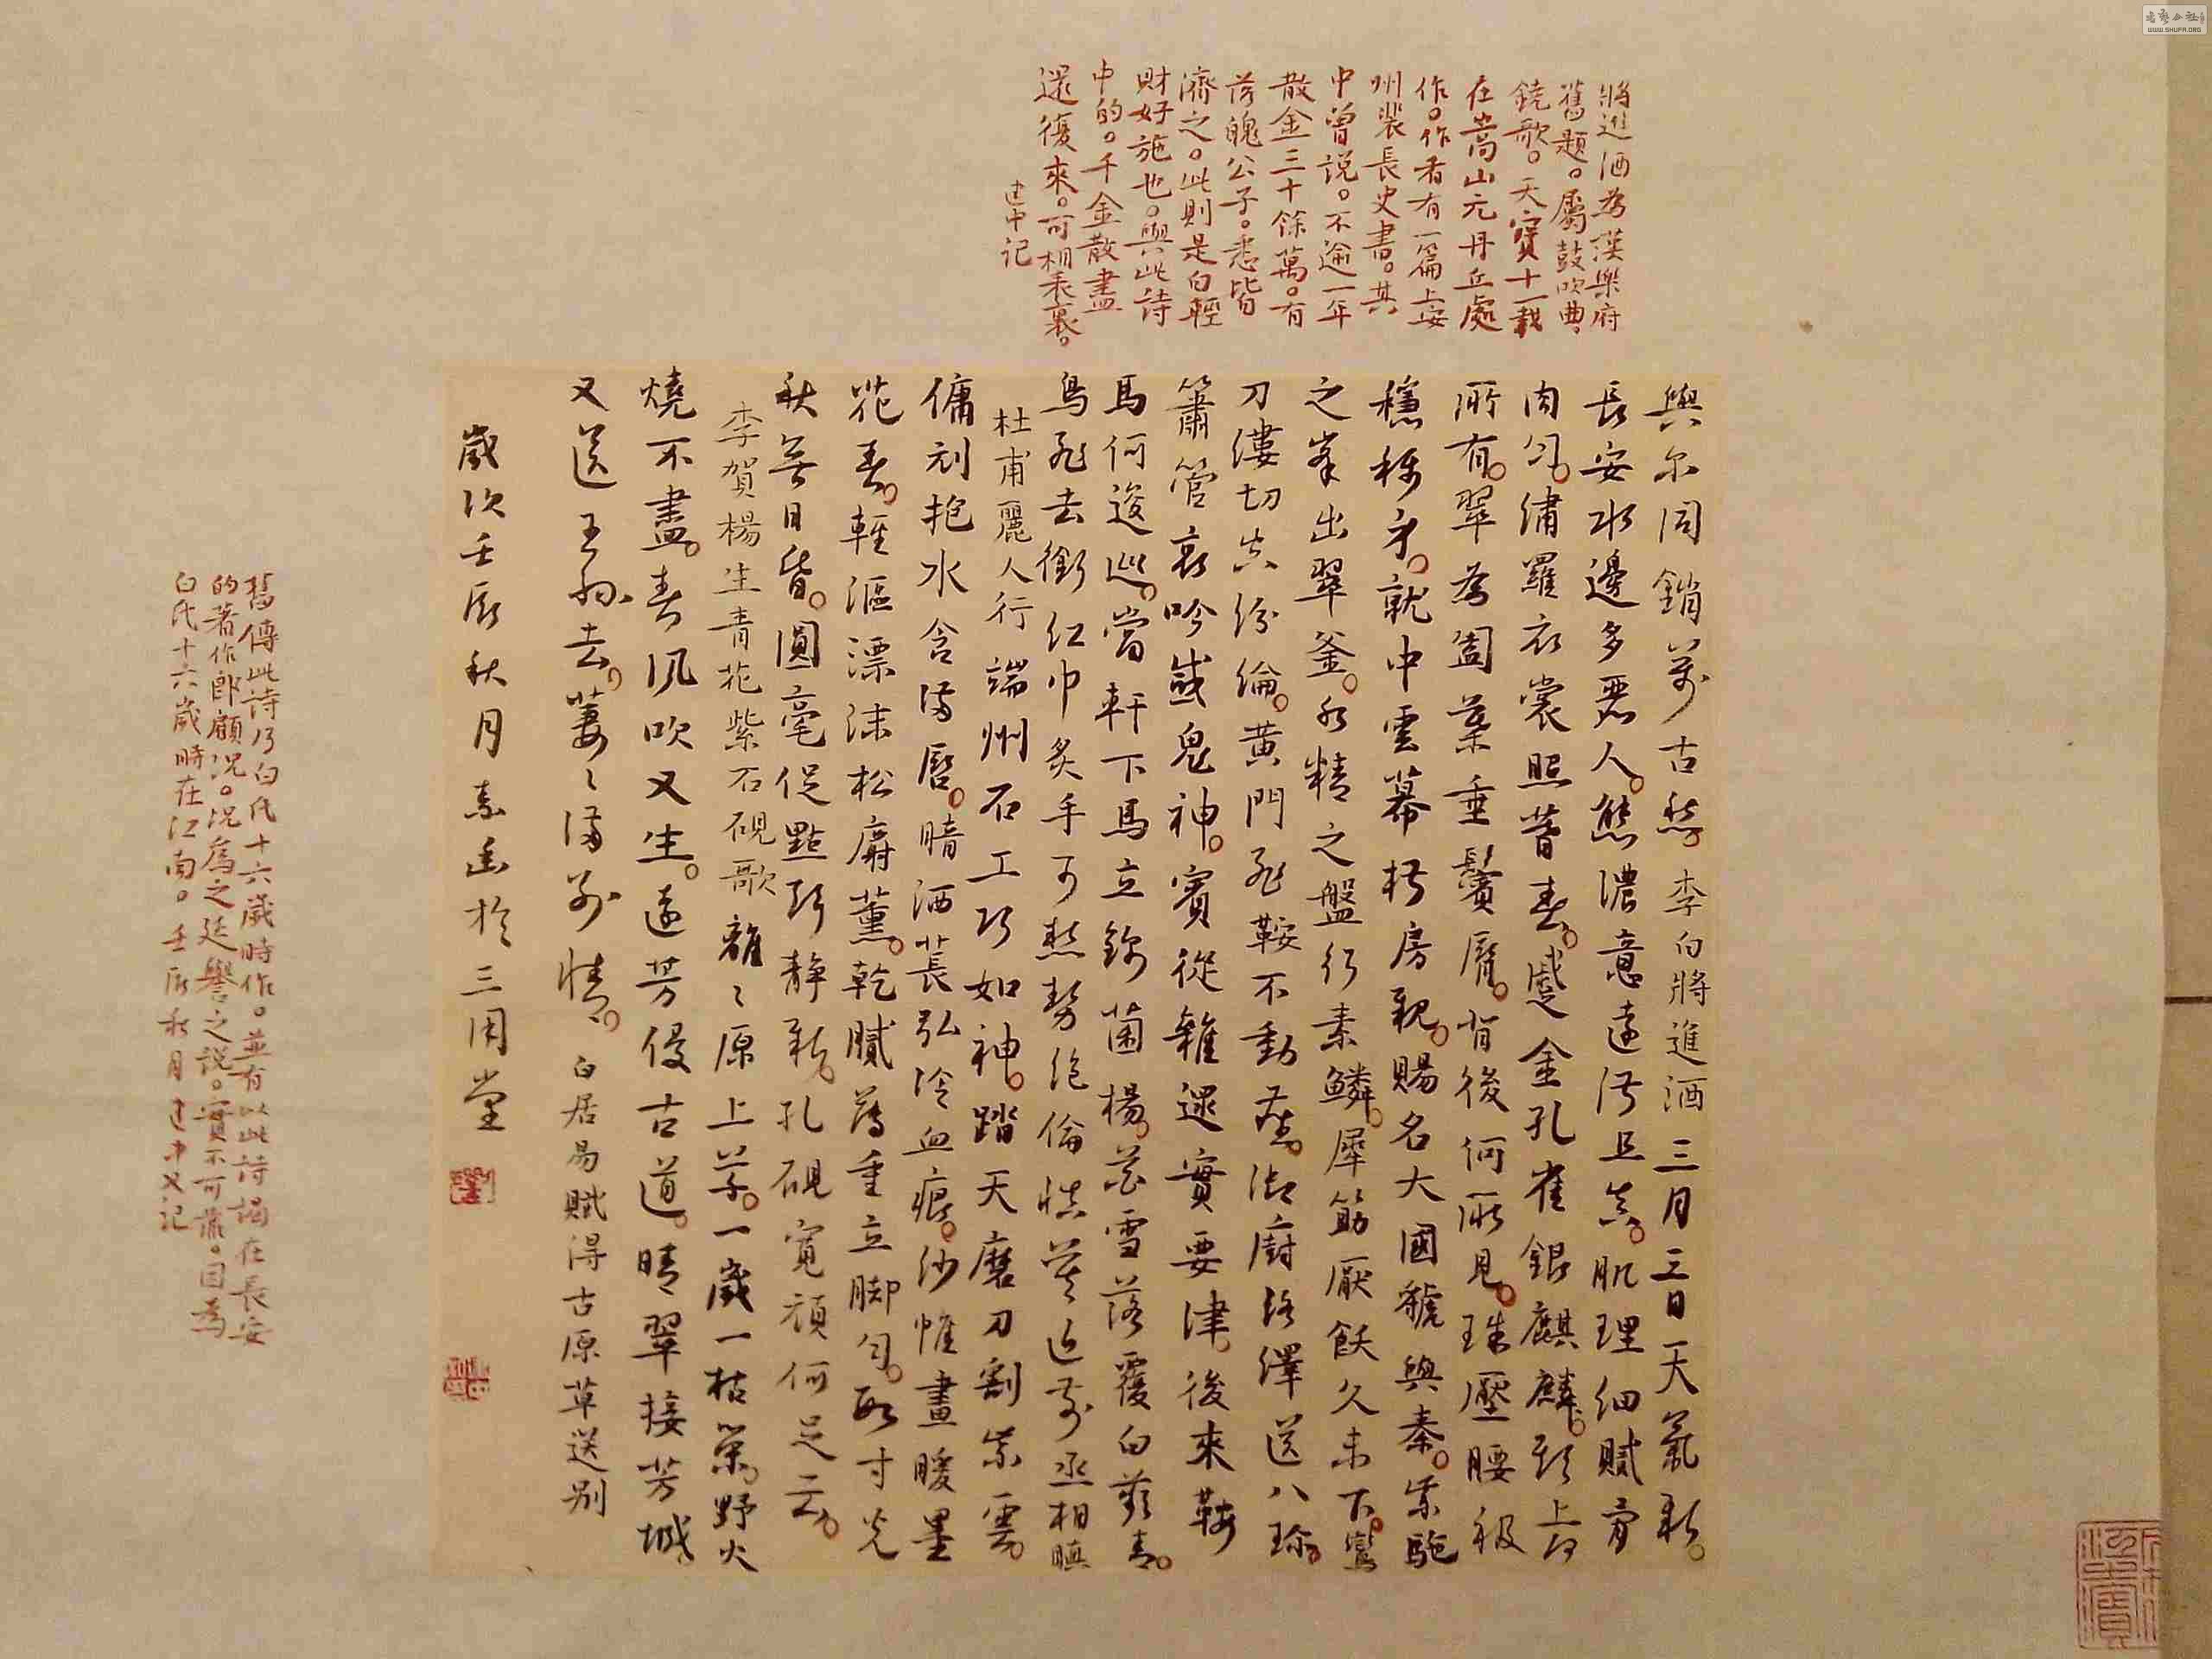 將進酒為漢樂府
舊題。屬鼓吹曲
鐃歌。天寶十一載
在嵩山元丹丘處
作。作者有一篇上安
州裴長史書。其
中曾說。不逾一年
散金三十餘萬。有
落魄公子。悉皆
濟之。此則是白輕
財好施也。與此詩
中的。千金散盡
還復來。可相表裏。
建中記
與尔同銷萬古愁李白將進酒三月三日天氣新。
長安水邊多麗人。態濃意遠淑且真。肌理細膩骨
肉勻。繡羅衣裳照暮春。蹙金孔雀銀麒麟。頭上何
所有。翠為㔩葉垂鬢唇。背後何所見。珠壓腰衱
穩稱身。就中雲幕椒房親。賜名大國虢與秦。紫駝
之峯出翠釜。水精之盤行素鱗。犀筯厭飫久未下。鸞
刀縷切空紛綸。黃門飛鞍不動塵。御廚絡繹送八珍。
簫管哀吟感鬼神。賓從雜遝實要津。後來鞍
馬何逡巡。當軒下馬立錦茵楊。花雪落覆白蘋青。
鳥飛去銜紅巾炙手可熱勢絕倫慎莫近前丞相瞋
杜甫麗人行端州石工巧如神。踏天磨刀割紫雲。
傭刓抱水含滿唇。暗洒萇弘冷血痕。紗帷晝暖墨
花春。輕漚漂沫松麝薰。乾膩薄重立腳勻。數寸光
秋無日昏。圓毫促點聲靜新。孔硯寬頑何足云。
李賀楊生青花紫石硯歌離〻原上草。一歲一枯榮。野火
燒不盡。春風吹又生。遠芳侵古道。晴翠接荒城
又送王孫去。萋〻滿別情。白居易賦得古原草送別
歲次壬辰秋月於三用堂
舊傳此詩乃白氏十六歲時作。並有以此詩謁在長安
的著作郎顧況。況為之延譽之說。實不可靠。因為
白氏十六歲時在江南。壬辰秋月建中又記
WWW.SHUFA.ORG